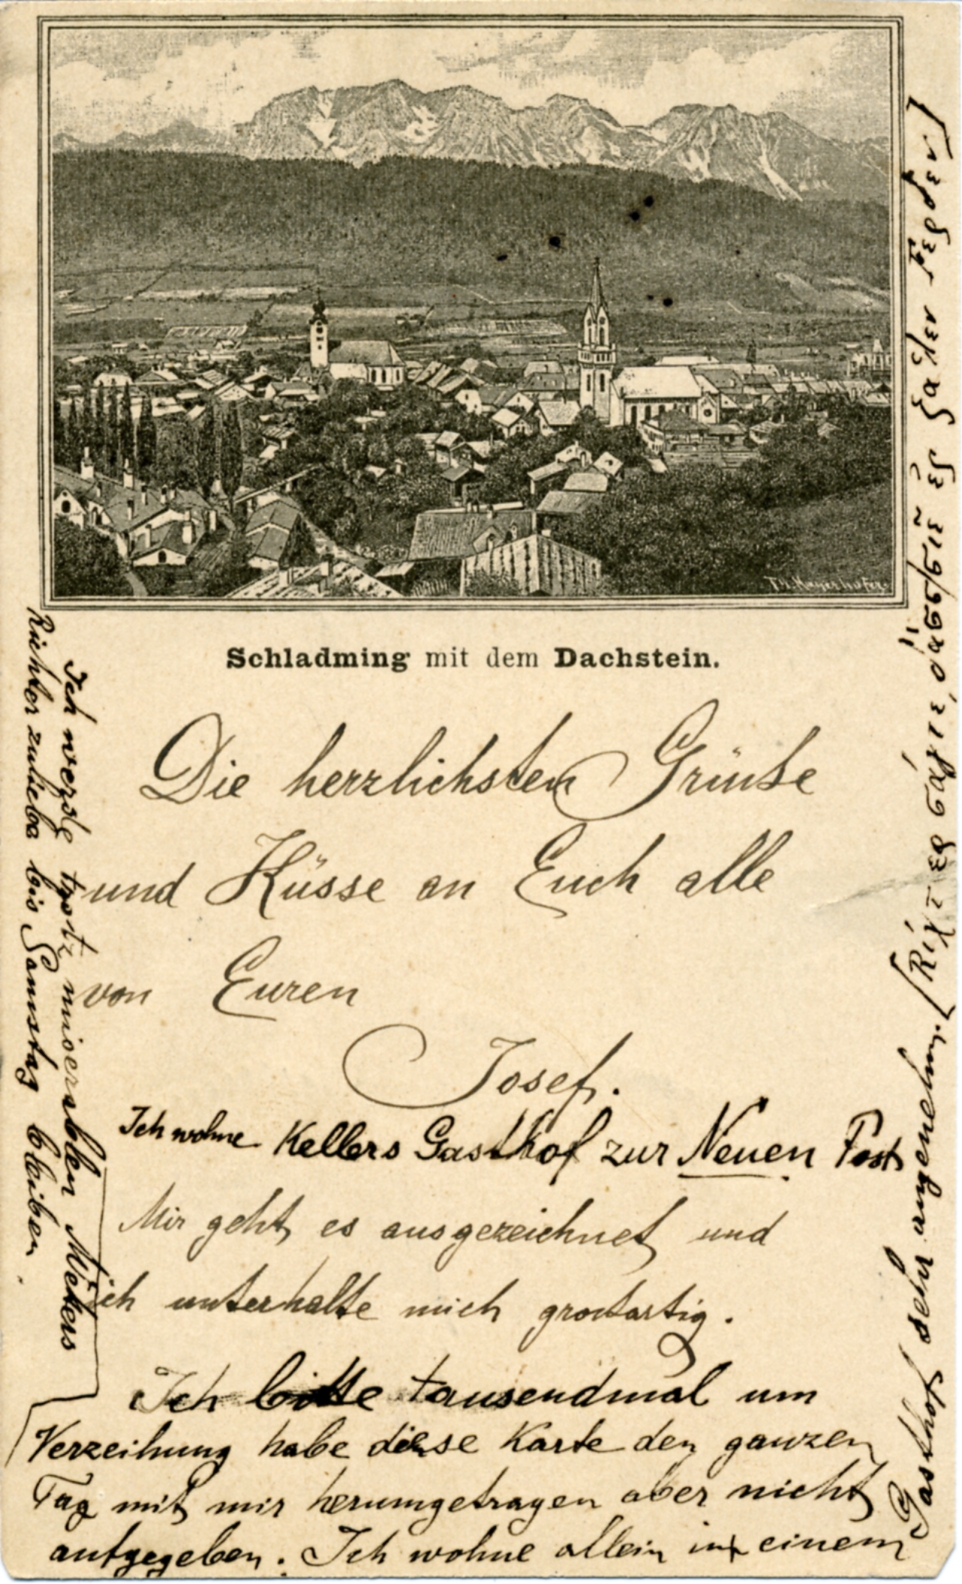 Th. Mayerhofer
Schladming mit dem Dachstein.
Die herzlichsten Grüße
und Küsse an Euch alle
von Euren
Josef.
Ich wohne Kellers Gasthof zur Neuen Post
Mir geht es ausgezeichnet und
ich unterhalte mich großartig.
Ich bitte tausendmal um
Verzeihung habe diese Karte den ganzen
Tag mit mir herumgetragen aber nicht
aufgegeben. Ich wohne allein in einem
Gasthof sehr angenehm.
Ich werde trotz miserablen Wetters
Richter zuliebe bis Samstag bleiben.